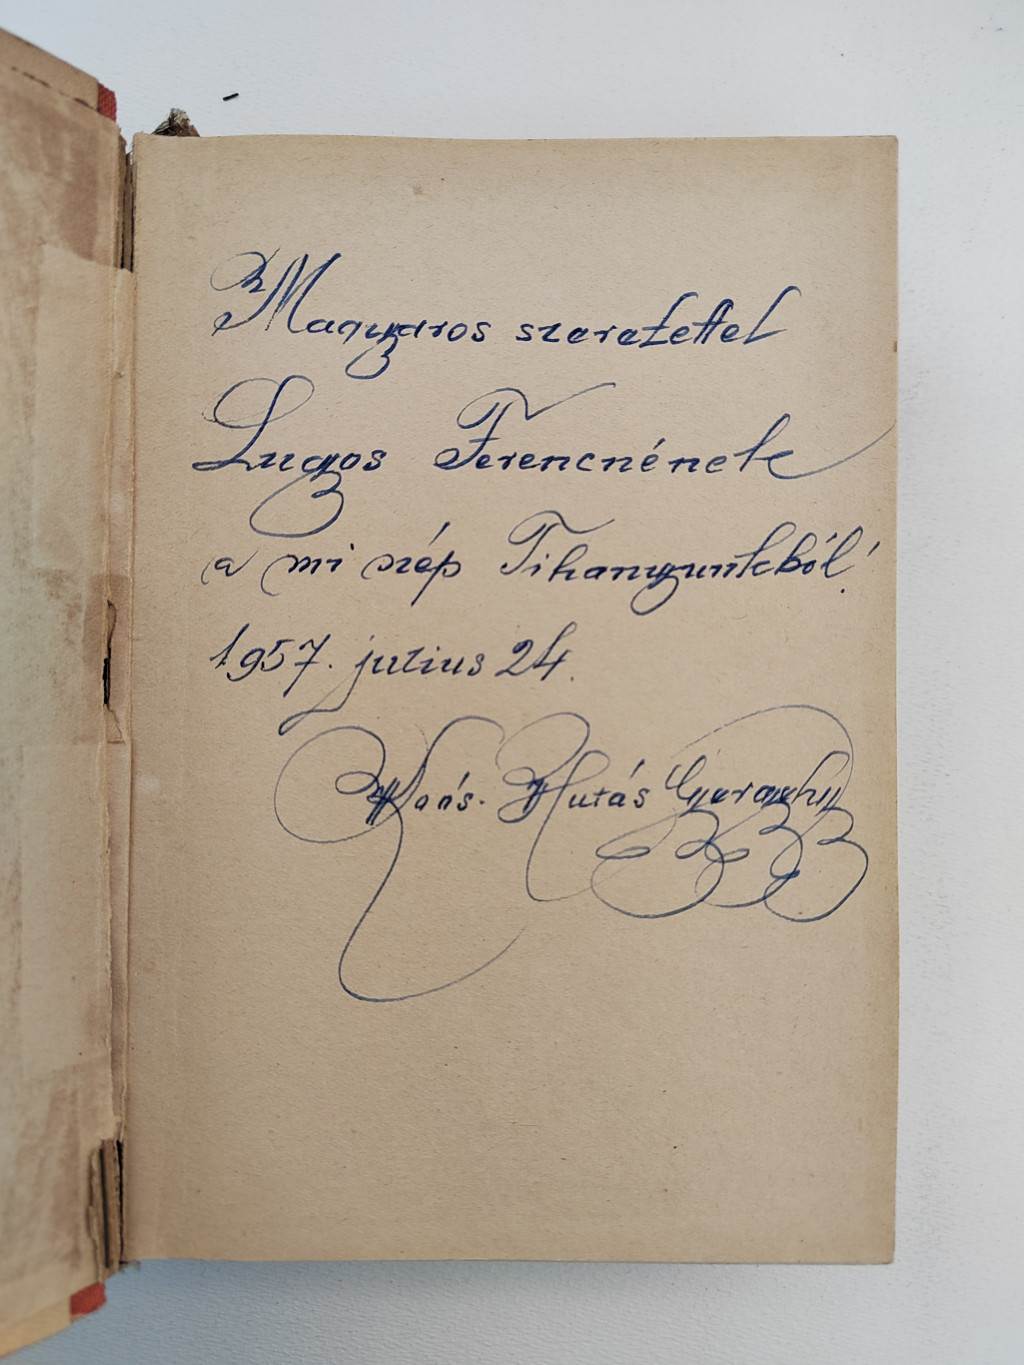 Magyaros szeretettel
Lugos Ferencnének
a mi szép Tihanyunkból!
1957. július 24.
Koós-Hutás Gergely